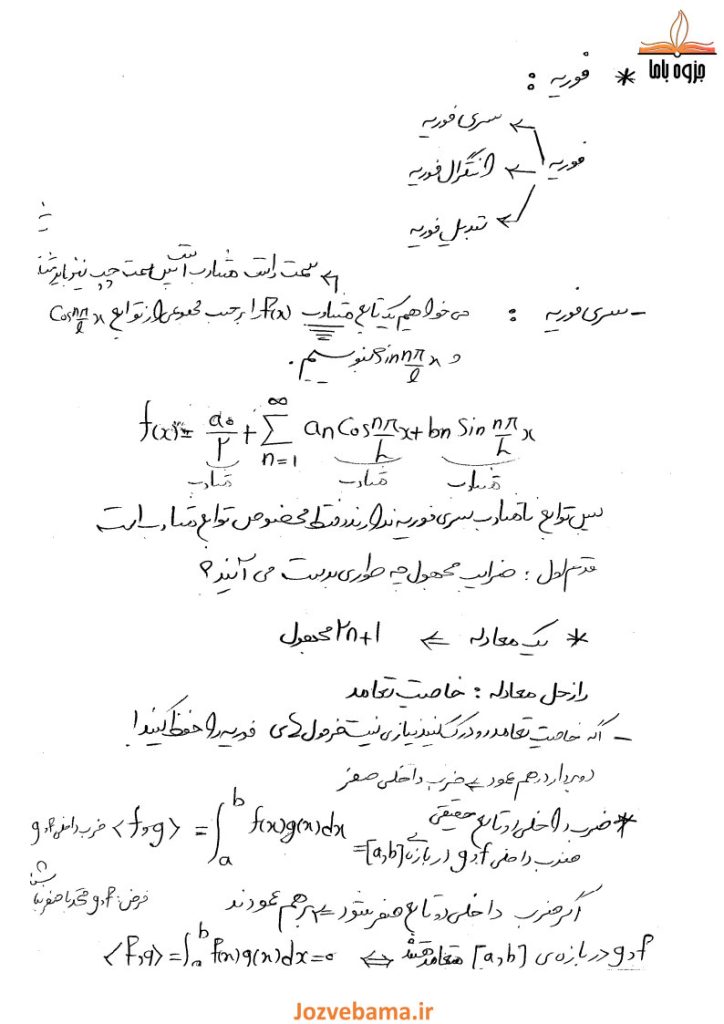 جزوه باما
* فوریه :
سری فوریه
فوریه ← انتگرال فوریه
تبدیل فوریه
سمت راست متناوب است پس سمت چپ نیز باید
- سری فوریه : می خواهیم یک تابع متناوب f(x) را برحسب مجموعی از توابع Cos nπ/l x
و Sin nπ/l x بنویسیم.
f(x) = a₀/۲ + ∑ n=1 ∞ an Cos nπ/L x + bn Sin nπ/L x
متناوب متناوب متناوب
پس توابع نامتناوب سری فوریه ندارند و فقط مخصوص توابع متناوب است
قدم اول : ضرایب مجهول چه طوری بدست می آیند؟
* یک معادله ← ۲n+1 مجهول
راز حل معادله : خاصیت تعامد
- اگه خاصیت تعامد رو درک کنید نیازی نیست فرمول های فوریه را حفظ کنید!
دو بردار در هم عمود ← ضرب داخلی صفر
* ضرب داخلی دو تابع حقیقی
ضرب داخلی f و g <f,g> = ∫ a b f(x)g(x)dx
ضرب داخلی f و g در بازه ی [a,b] =
فرض: f و g متحد با صفر
اگر ضرب داخلی دو تابع صفر شود ← برهم عمودند
f و g در بازه ی [a,b] متعامد هستند ⇔ <f,g> = ∫ a b f(x)g(x)dx = 0
Jozvebama.ir